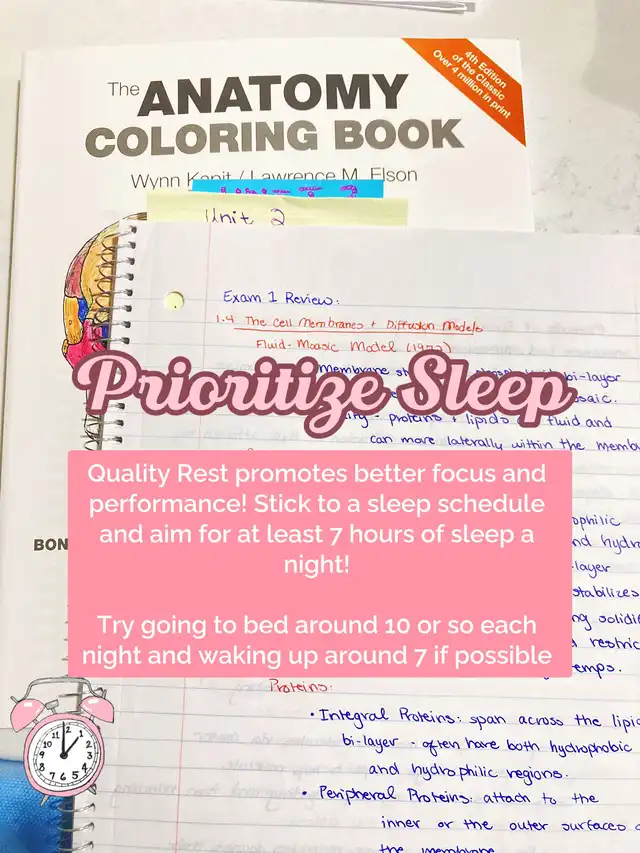 The ANATOMY
COLORING BOOK
4th Edition
of the Classic
Over 4 million in print
Wynn Kapit / Lawrence M. Elson
Unit 2
Exam 1 Review:
1.4 The Cell Membranes + Diffusion Models
Fluid-Moasic Model (1972)
Prioritize Sleep
membrane
bi-layer
mosaic.
proteins + lipids fluid and
can move laterally within the memb
Quality Rest promotes better focus and
performance! Stick to a sleep schedule
and aim for at least 7 hours of sleep a
night!
Try going to bed around 10 or so each
night and waking up around 7 if possible
BON
philic
nd hydro
layer
stabilizes
ng solidif
restric
temps.
Proteins:
• Integral Proteins: span across the lipid
bi-layer - often have both hydrophobic
and hydrophilic regions.
• Peripheral Proteins: attach to the
inner or the outer surfaces o
the membrane
12 1 2 3 4 5 6 7 8 9 10 11